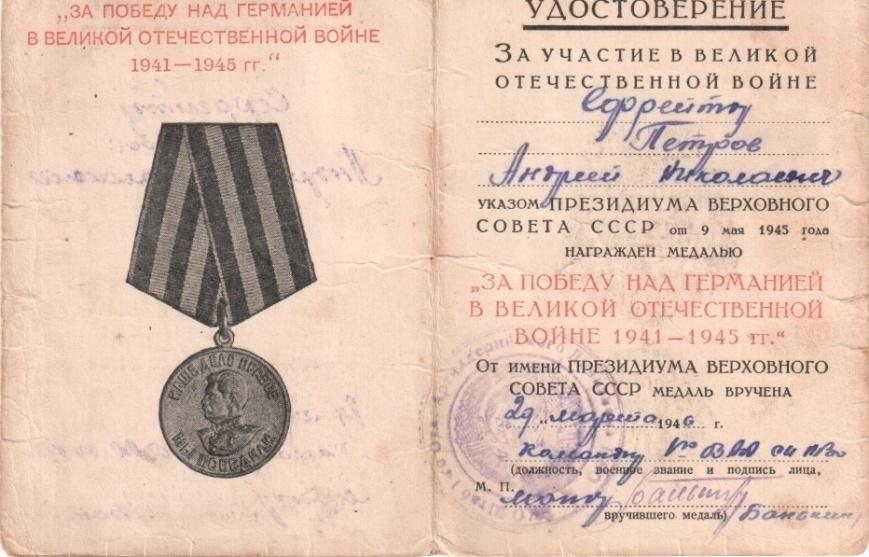 „ЗА ПОБЕДУ НАД ГЕРМАНИЕЙ
В ВЕЛИКОЙ ОТЕЧЕСТВЕННОЙ ВОЙНЕ
1941—1945 гг.“
НАШЕ ДЕЛО ПРАВОЕ
МЫ ПОБЕДИЛИ
УДОСТОВЕРЕНИЕ
ЗА УЧАСТИЕ В ВЕЛИКОЙ
ОТЕЧЕСТВЕННОЙ ВОЙНЕ
Ефрейтор
Петров
Андрей Николаевич
УКАЗОМ ПРЕЗИДИУМА ВЕРХОВНОГО
СОВЕТА СССР от 9 мая 1945 года
НАГРАЖДЕН МЕДАЛЬЮ
„ЗА ПОБЕДУ НАД ГЕРМАНИЕЙ
В ВЕЛИКОЙ ОТЕЧЕСТВЕННОЙ
ВОЙНЕ 1941—1945 гг.“
ОТ ИМЕНИ ПРЕЗИДИУМА ВЕРХОВНОГО
СОВЕТА СССР МЕДАЛЬ ВРУЧЕНА
29 „ марта 1946 г.
(должность, военное звание и подпись лица,
М. П.
вручившего медаль)